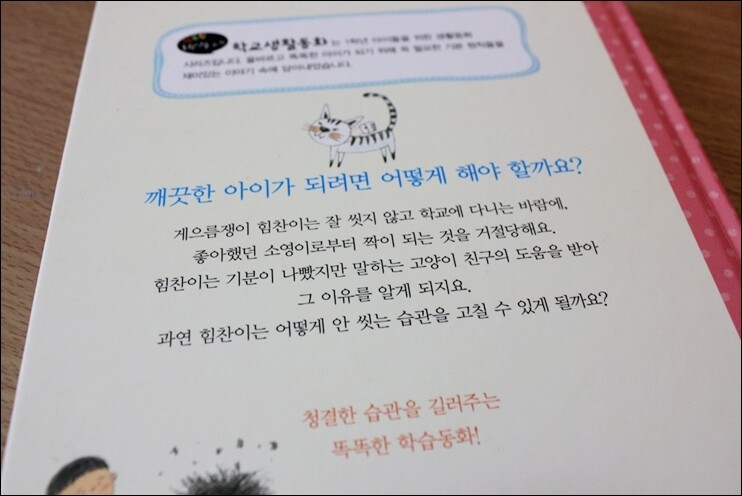 학교생활동화 는 1학년 아이들을 위한 생활동화
시리즈입니다. 올바르고 똑똑한 아이가 되기 위해 꼭 필요한 기본 원칙들을
재미있는 이야기 속에 담아내었습니다.
깨끗한 아이가 되려면 어떻게 해야 할까요?
게으름쟁이 힘찬이는 잘 씻지 않고 학교에 다니는 바람에,
좋아했던 소영이로부터 짝이 되는 것을 거절당해요.
힘찬이는 기분이 나빴지만 말하는 고양이 친구의 도움을 받아
그 이유를 알게 되지요.
과연 힘찬이는 어떻게 안 씻는 습관을 고칠 수 있게 될까요?
청결한 습관을 길러주는
똑똑한 학습동화!